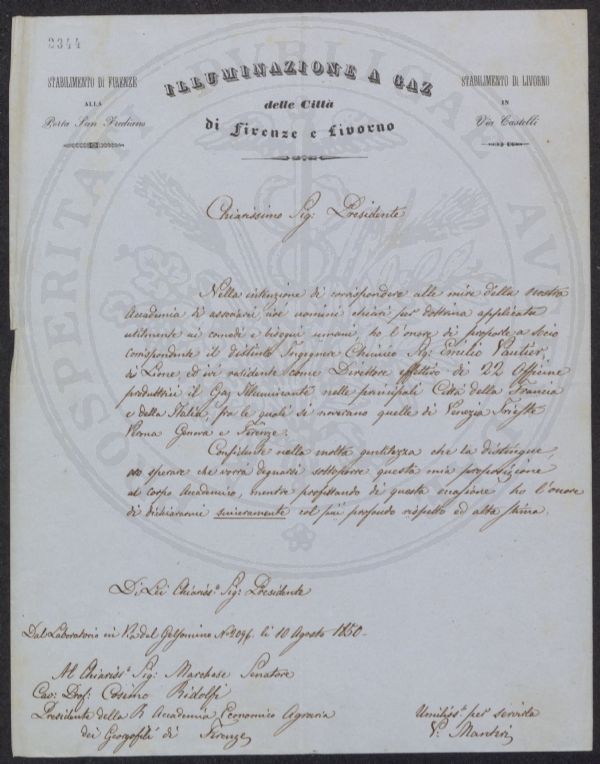 2344
ILLUMINAZIONE A GAZ
delle Città
di Firenze e Livorno
STABILIMENTO DI FIRENZE
ALLA
Porta San Frediano
STABILIMENTO DI LIVORNO
IN
Via Castelli
PROSPERITATI PUBLICAE AUGENDAE
Chiarissimo Sig: Presidente
Nella intenzione di corrispondere alle mire della nostra
Accademia di associarsi uomini chiari per dottrina applicata
utilmente ai comodi e bisogni umani, ho l'onore di proporre a Socio
corrispondente il distinto Ingegnere Chimico Sig: Emilio Vautier,
di Lione, ed ivi residente come Direttore effettivo di 22 Officine
produttrici il Gaz Illuminante nelle principali Città della Francia
e della Italia, fra le quali si noverano quelle di Venezia Trieste
Parma Genova e Firenze.
Confidente nella molta gentilezza che la distingue,
oso sperare che vorrà degnarsi sottoporre questa mia proposizione
al corpo Accademico, mentre profittando di questa occasione ho l'onore
di dichiararmi sinceramente col più profondo rispetto ed alta stima.
Di Lei Chiariss.º Sig: Presidente
Dal Laboratorio in Via del Gelsomino li 10 Agosto 1850.
Al Chiariss.º Sig: Marchese Senatore
Cav: Prof: Cosimo Ridolfi
Presidente della R Accademia Economico Agraria
dei Georgofili di Firenze
Umiliss.º per servirla
V.